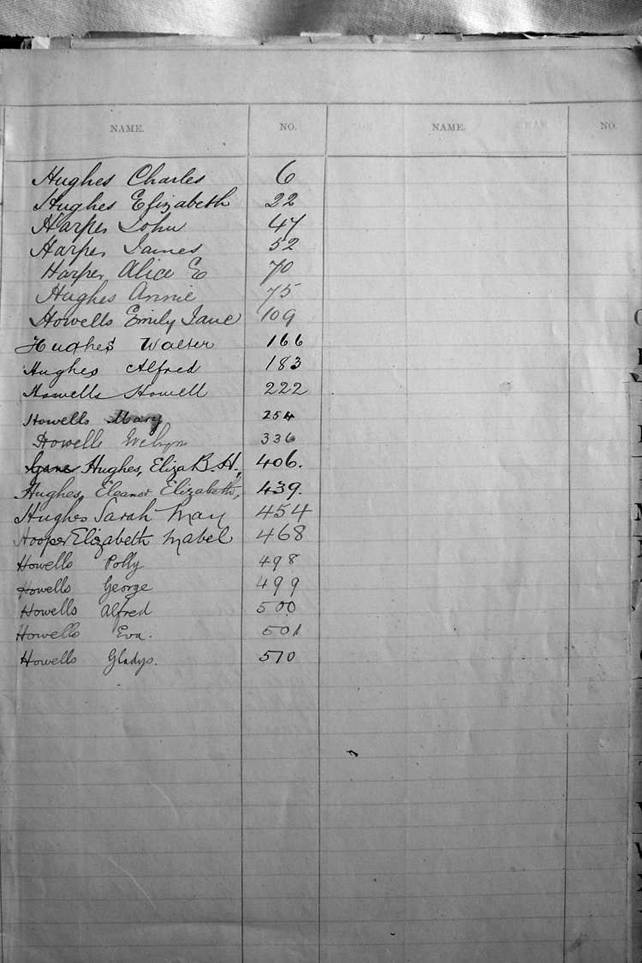 NAME. NO. NAME. NO.
Hughes Charles 6
Hughes Elizabeth 22
Harper John 47
Harper James 52
Harper Alice E 70
Hughes Annie 75
Howells Emily Jane 109
Hughes Walter 166
Hughes Alfred 183
Howells Howell 222
Howells Mary 254
Howells Evelyn 336
Hughes, Eliza B. H. 406.
Hughes, Eleanor Elizabeth, 439.
Hughes Sarah May 454
Hooper Elizabeth Mabel 468
Howells Polly 498
Howells George 499
Howells Alfred 500
Howells Eva. 501
Howells Gladys. 510